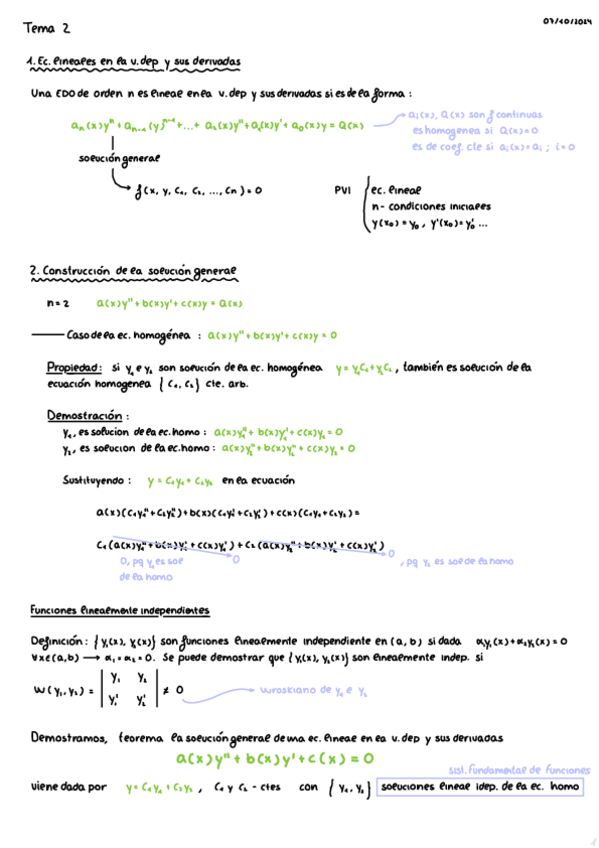 07/10/2024
Tema 2
1. Ec. lineales en la v.dep y sus derivadas
Una EDO de orden n es lineal en la v. dep y sus derivadas si es de la forma :
aₙ(x)yⁿ + aₙ₋₁(y)ⁿ⁻¹ + ... + a₂(x)y'' + a₁(x)y' + a₀(x)y = Q(x)
aᵢ(x), Q(x) son f continuas
es homogenea si Q(x)=0
es de coef. cte si aᵢ(x)=aᵢ ; i=0
solución general
f(x, y, C₁, C₂, ..., Cn) = 0
PVI
ec. lineal
n- condiciones iniciales
y(x₀) = y₀ , y'(x₀) = y'₀ ...
2. Construcción de la solución general
n = 2 a(x)y'' + b(x)y' + c(x)y = Q(x)
Caso de la ec. homogénea : a(x)y'' + b(x)y' + c(x)y = 0
Propiedad: si y₁ e y₂ son solución de la ec. homogénea y = y₁C₁ + y₂C₂ , también es solución de la
ecuación homogenea { C₁, C₂ } cte. arb.
Demostración :
y₁, es solucion de la ec. homo : a(x)y₁'' + b(x)y₁' + c(x)y₁ = 0
y₂, es solucion de la ec. homo : a(x)y₂'' + b(x)y₂' + c(x)y₂ = 0
Sustituyendo : y = C₁y₁ + C₂y₂ en la ecuación
a(x)(C₁y₁'' + C₂y₂'') + b(x)(C₁y₁' + C₂y₂') + c(x)(C₁y₁ + C₂y₂) =
C₁(a(x)y₁'' + b(x)y₁' + c(x)y₁') + C₂(a(x)y₂'' + b(x)y₂' + c(x)y₂')
0, pq y₁ es sol 0 0 , pq y₂ es sol de la homo
de la homo
Funciones linealmente independientes
Definición : { y₁(x), y₂(x)} son funciones linealmente independiente en (a, b) si dada α₁y₁(x) + α₂y₂(x) = 0
∀x∈(a,b) → α₁ = α₂ = 0. Se puede demostrar que {y₁(x), y₂(x)} son linealmente indep. si
W(y₁, y₂) = | y₁ y₂ | ≠ 0
| y₁' y₂' |
wroskiano de y₁ e y₂
Demostramos, teorema la solución general de una ec. lineal en la v. dep y sus derivadas
a(x)y'' + b(x)y' + c(x) = 0
sist. fundamental de funciones
viene dada por y = C₁y₁ + C₂y₂ , C₁ y C₂ - ctes con { y₁, y₂ } soluciones lineal idep. de la ec. homo
1